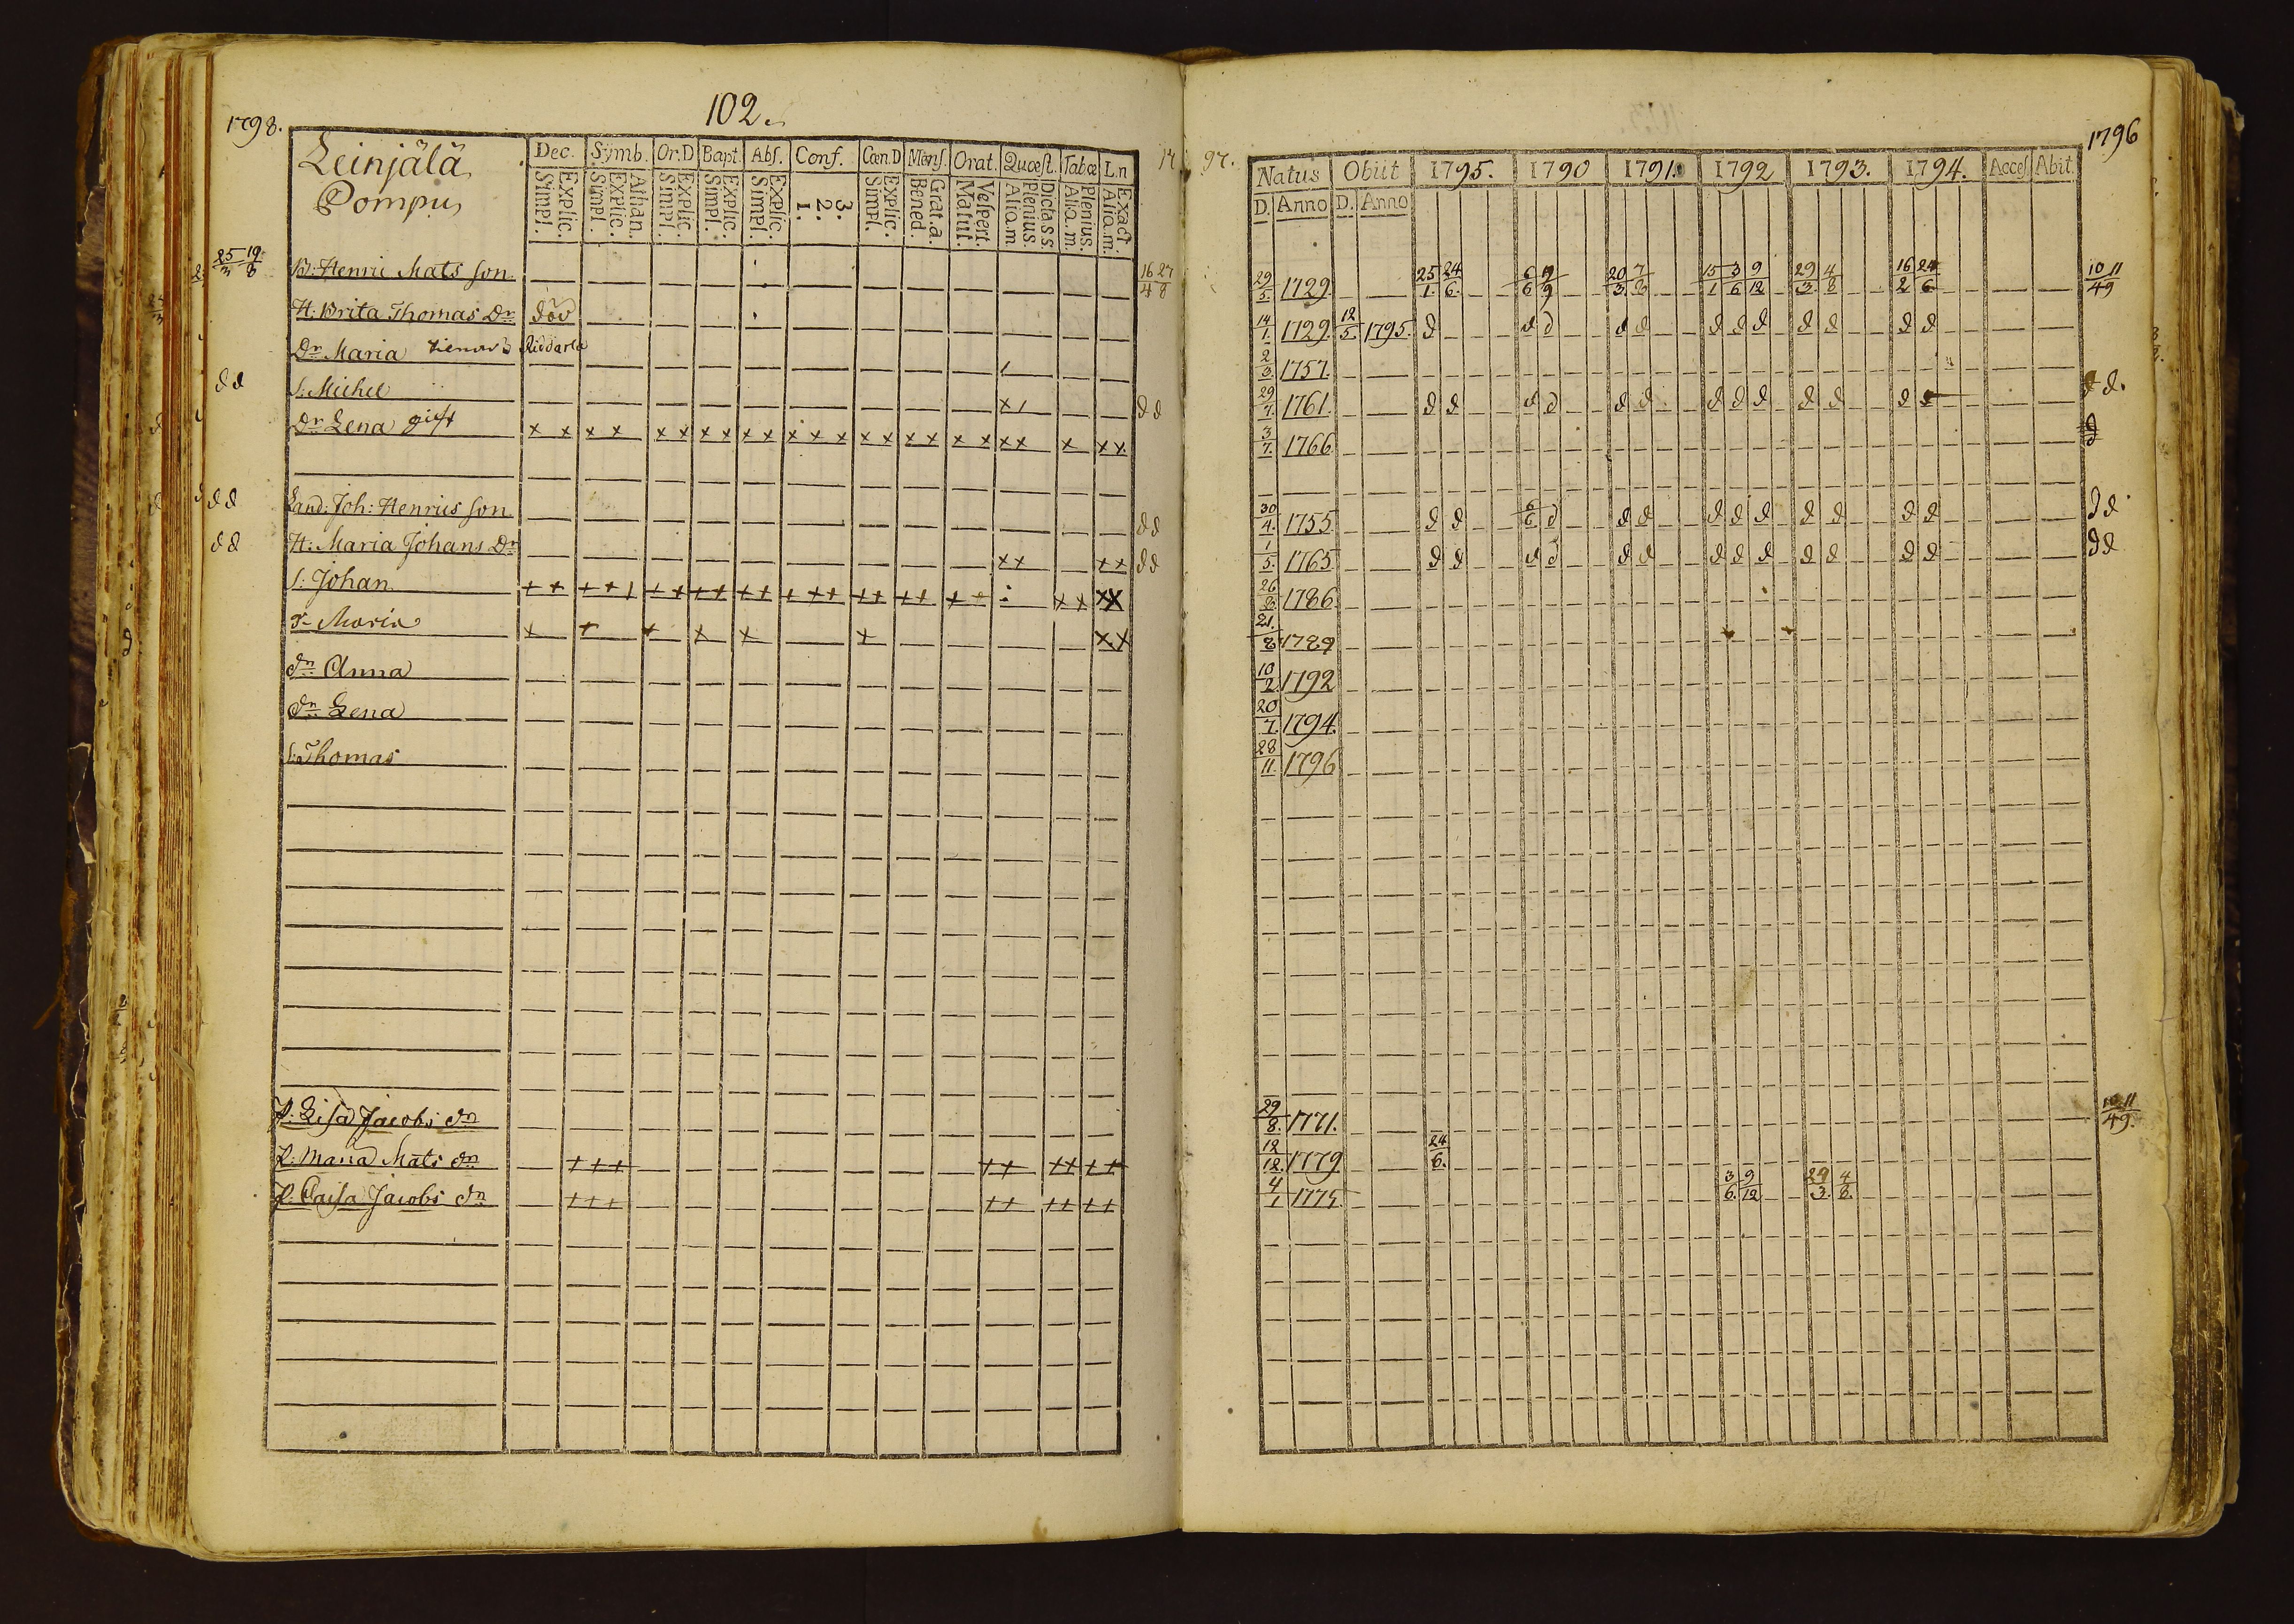 102.
1798.
Leinjälä
Pompu
Dec. Symb. Or.D Bapt. Abſ. Conf. Cœn.D Menſ. Orat. Quœſt. Tabœ L.n
Simpl. Explic. Simpl. Explic. Athan. Simpl. Explic. Simpl. Explic. Simpl. Explic. 1. 2. 3. Simpl. Explic. Bened. Grat.a. Matut. Veſpert. Aliq.m Plenius. Dicta ss. Aliq.m. Plenius. Aliq.m. Exact.
25/3 19/8 B: Henric Mats ſon 16/4 27/8
H: Brita Thomas Dr död
Dr Maria tienar Riddarla
dd S: Michel x1 dd
Dr Lena gift x x x x x x x x x x x x x x x x x x x x x x x x x
dd Land: Joh: Henrics ſon dd
dd H: Maria Johans Dr xx xx dd
S: Johan ++ ++1 ++ ++ ++ +++ ++ ++ ++ xx xx
Dr Maria x + + x x x xx
dr Anna
dr Lena
S: Thomas
P. Lisa Jacobs dr
P: Maria Mats dr +++ ++ ++ ++
P. Caisa Jacobs dr +++ ++ ++ ++
17 97.
1796
Natus Obiit 1795. 1790 1791. 1792 1793. 1794. Acceſ Abit.
D. Anno D. Anno
29/5. 1729 25/1. 24/6. 6/6 19/9 20/3. 7/8 15/1 3/6 9/12 29/3 4/8 16/2 24/6 10 11/49
14/1. 1729. 12/5. 1795. d d d d d d d d d d d d
2/3. 1757
29/7. 1761 d d d d d d d d d d d d d d d.
3/7. 1766 d
30/4. 1755 d d 6/6 d d d d d d d d d d d d
1/5. 1765 d d d d d d d d d d d d d d d
26/8. 1786
21./8 1789
10/2. 1792
20/7. 1794.
28/11. 1796
29/8. 1771. 10 11/49.
12/12. 1779 24/6.
4/1 1775. 3/6. 9/12 29/3. 4/8.